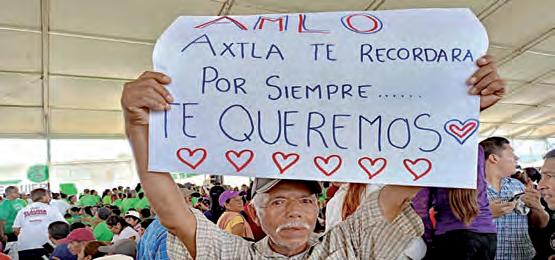 AMLO
AXTLA TE RECORDARA
POR SIEMPRE......
TE QUEREMOS